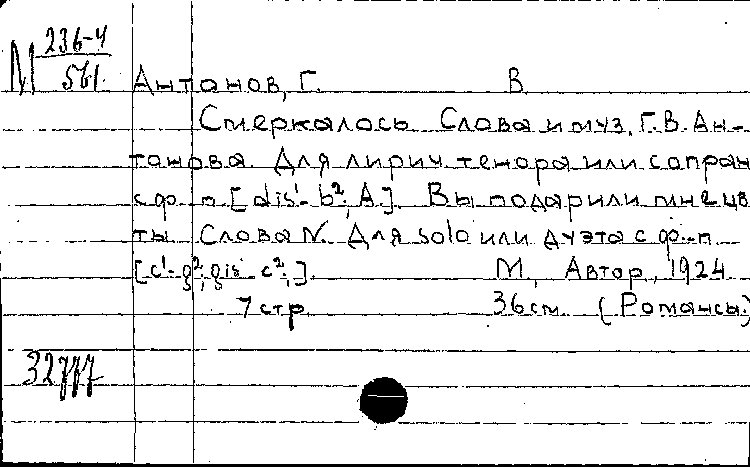 М 236-4
561.
Антонов, Г. В
Смеркалось Слова и муз. Г.В. Ан-
тонова. Для лирич. тенора или сопран
с ф.-п. [dis¹-b²; A]. Вы подарили мне цв
ты Слова N. Для solo или дуэта с ф.-п
[c¹-g²; gis - c²;]. М., Автор, 1924
7 стр. 36 см. (Романсы.)
32777